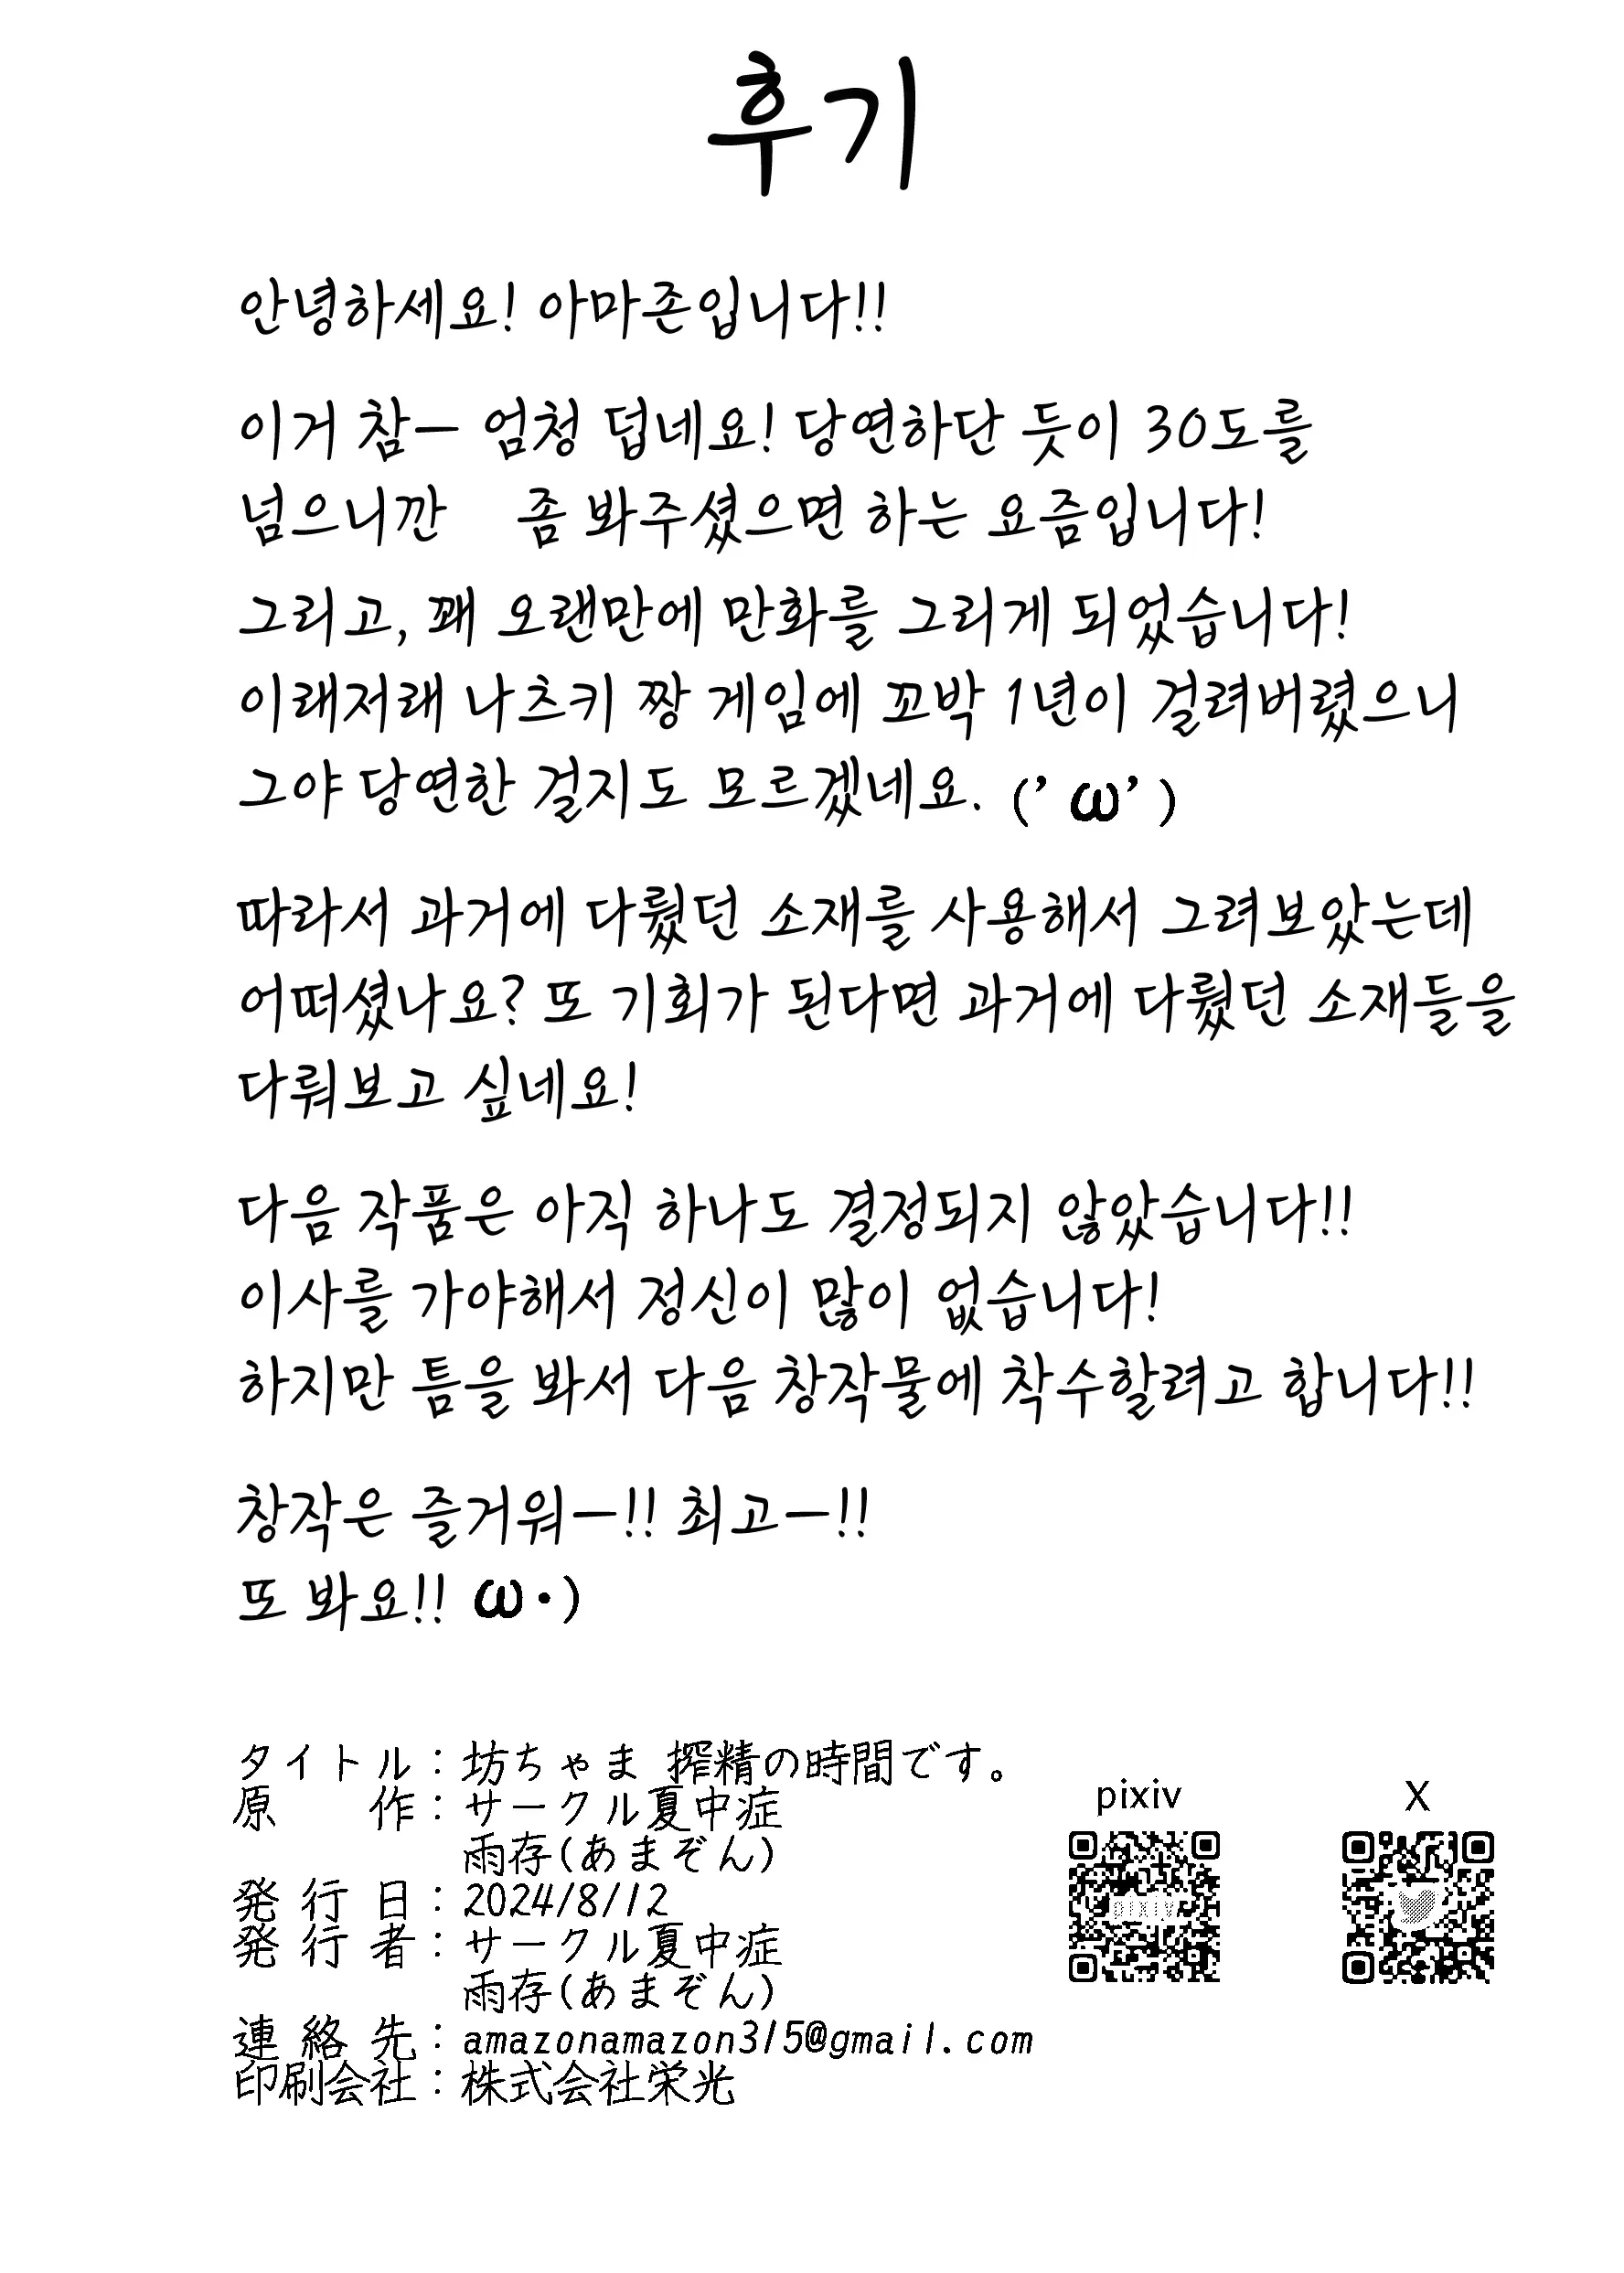 후기
안녕하세요! 아마존입니다!!
이거 참ー 엄청 덥네요! 당연하단 듯이 30도를
넘으니깐 좀 봐주셨으면 하는 요즘입니다!
그리고, 꽤 오랜만에 만화를 그리게 되었습니다!
이래저래 나츠키 짱 게임에 꼬박 1년이 걸려버렸으니
그야 당연한 걸지도 모르겠네요. (’ω’)
따라서 과거에 다뤘던 소재를 사용해서 그려보았는데
어떠셨나요? 또 기회가 된다면 과거에 다뤘던 소재들을
다뤄보고 싶네요!
다음 작품은 아직 하나도 결정되지 않았습니다!!
이사를 가야해서 정신이 많이 없습니다!
하지만 틈을 봐서 다음 창작물에 착수할려고 합니다!!
창작은 즐거워ー!! 최고ー!!
또 봐요!! ω・)
タイトル：坊ちゃま 搾精の時間です。
原　作：サークル夏中症
雨存(あまぞん)
発行日：2024/8/12
発行者：サークル夏中症
雨存(あまぞん)
連絡先：amazonamazon315@gmail.com
印刷会社：株式会社栄光
pixiv
X
pixiv